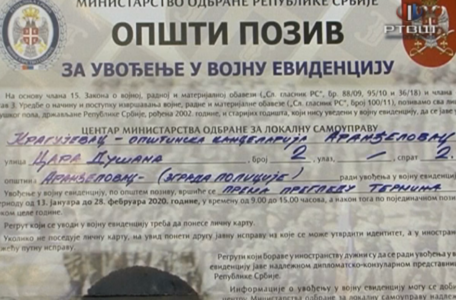 МИНИСТАРСТВО ОДБРАНЕ РЕПУБЛИКЕ СРБИЈЕ
ОПШТИ ПОЗИВ
ЗА УВОЂЕЊЕ У ВОЈНУ ЕВИДЕНЦИЈУ
На основу члана 15. Закона о војној, радној и материјалној обавези („Сл. гласник РС", бр. 88/09, 95/10 и 36/18) и члана
3. Уредбе о начину и поступку извршавања војне, радне и материјалне обавезе („Сл. гласник РС", број 100/11), позивамо сва лица
мушког пола, држављане Републике Србије, рођена 2002. године, и старијих годишта, који нису уведени у војну евиденцију, да се јаве у
ЦЕНТАР МИНИСТАРСТВА ОДБРАНЕ ЗА ЛОКАЛНУ САМОУПРАВУ
Крагујевац - општинска канцеларија Аранђеловац
улица Цара Душана, број 2, улаз /, спрат 2.
општина Аранђеловац - (зграда полиције) ради увођења у војну евиденцију
Увођење у војну евиденцију, по општем позиву, вршиће се према прегледу термина
периоду од 13. јануара до 28. фебруара 2020. године, у времену од 9.00 до 15.00 часова, а након тога по појединачном позиву
ком целе године.
Регрут који се уводи у војну евиденцију треба да понесе личну карту.
Уколико не поседује личну карту, на увид понети другу јавну исправу на којој се може утврдити идентитет, а у иностранству
жећу путну исправу.
Регрути који бораве у иностранству дужни су да се ради увођења у војну
евиденцију јаве надлежном дипломатско-конзуларном представништву
Републике Србије.
Информације о увођењу у војну евиденцију могу се добити
Министарства одбране за локалну самоуправу надлежном